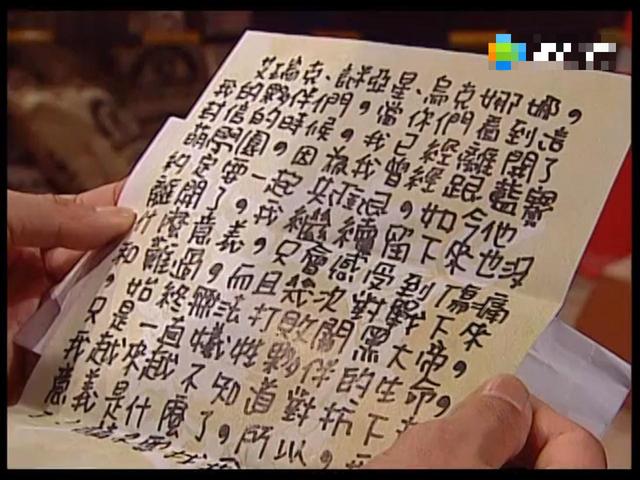 艾瑞克、謝亞星、烏克娜娜，
我的夥伴們，當你們看到這
封信的時候，我已經離開了
萌學園，因為我曾經跟藍寶
約定要一起，如今他
離開了，我繼續留下來也沒
什麼意義，只會感受到傷痛
和難過，而且幾次對戰下來
，始終無法打敗闇黑大帝，
只是一直犧牲夥伴的生命，
我越來越不知道對抗下
意義是什麼了，所以，